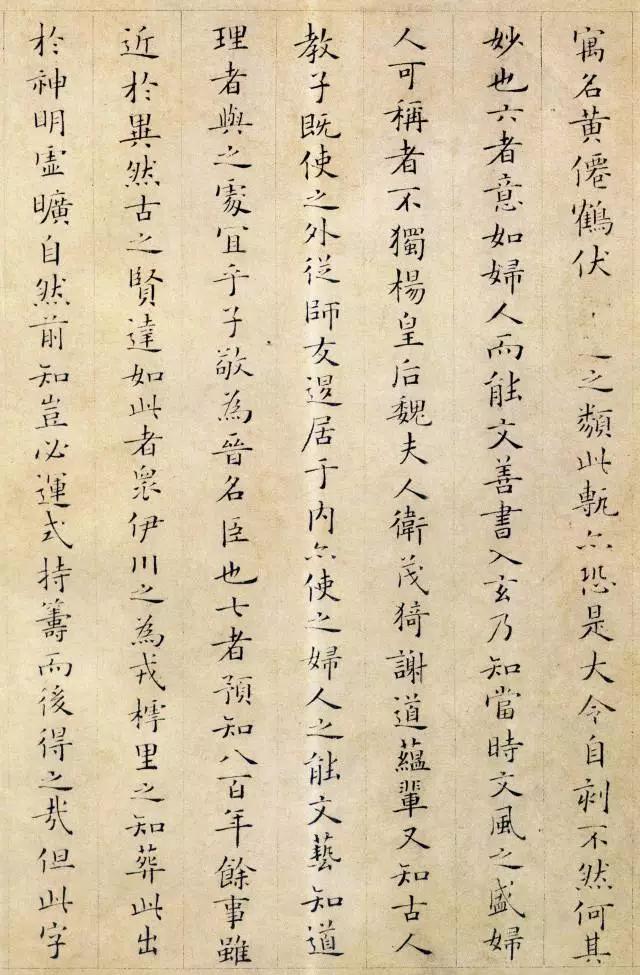 寓名黃僊鶴伏之類此甎亦恐是大令自刻不然何其
妙也六者意如婦人而能文善書入玄乃知當時文風之盛婦
人可稱者不獨楊皇后魏夫人衛茂猗謝道蘊輩又知古人
教子既使之外從師友退居于内亦使之婦人之能文藝知道
理者與之處宜乎子敬為晉名臣也七者預知八百年餘事雖
近於異然古之賢達如此者衆伊川之為戎樗里之知葬此出
於神明虛曠自然前知豈必運式持籌而後得之哉但此字